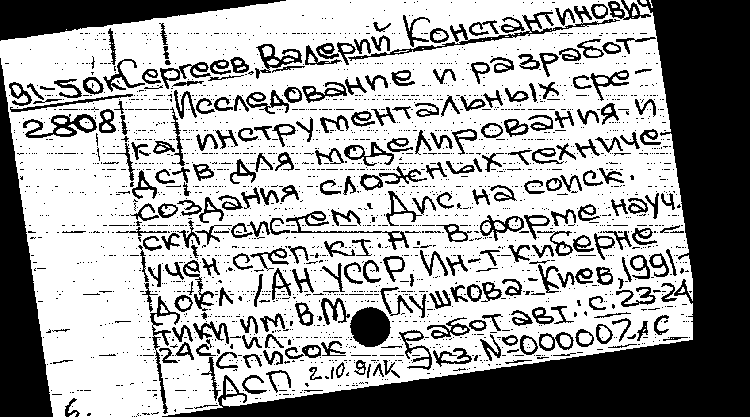 91-50к Сергеев, Валерий Константинович
2808 Исследование и разработ-
ка инструментальных сре-
дств для моделирования и
создания сложных техниче-
ских систем: Дис. на соиск.
учен. степ. к.т.н. в форме науч.
докл. / АН УССР, Ин-т киберне-
тики им. В.М. Глушкова.-Киев, 1991.-
24с. ил.
Список работ авт.: с. 23-24
ДСП. 2.10.91 ЛК Экз. №000007 дс
б.